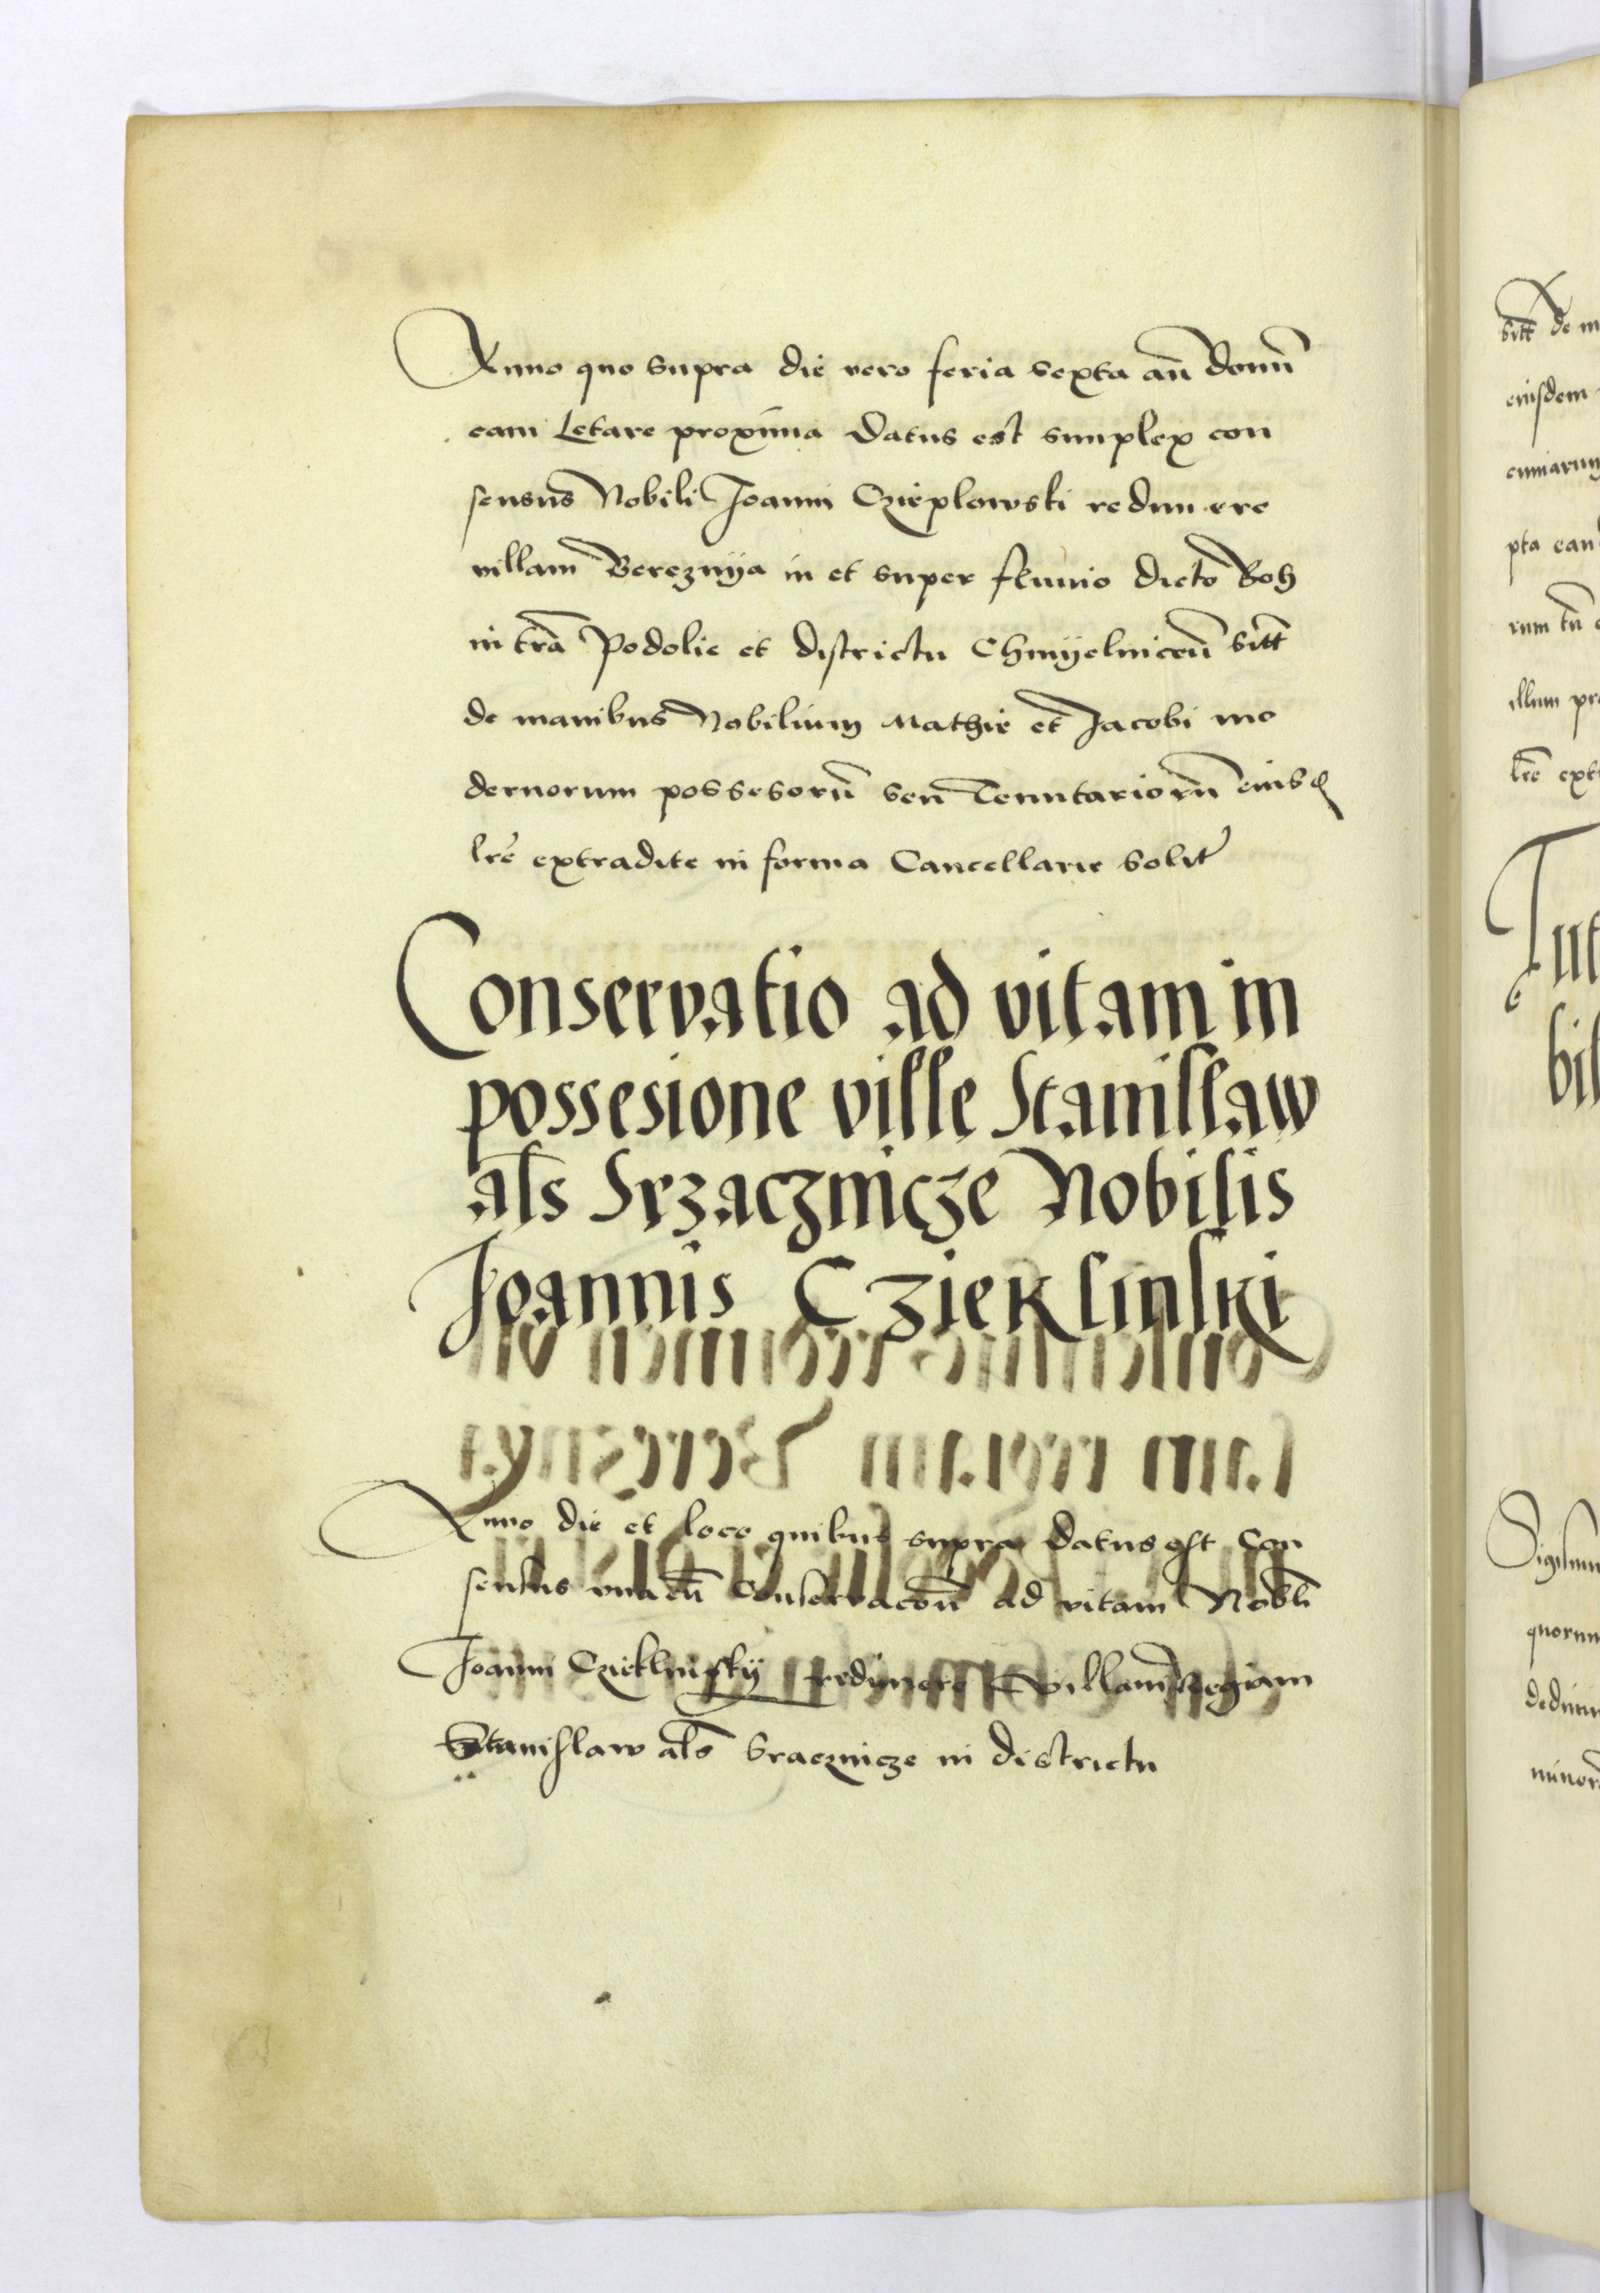 Anno quo supra die vero feria sexta añ domĩ
cam Letare proxima datus est simplex con
sensus Nobili Joanni Czieplowski redimere
villam Bereznija in et super fluvio dicto Boh
in trã Podolie et districtu Chmijelniceñ sitt̃
de manibus Nobilium Mathie et Jacobi mo
dernorum possesorũ seu Tenutariorũ eiusd
lrẽ extradite in forma Cancellarie solit̃
Conservatio ad vitam in
possesione ville Stanislaw
al̃s Srzacznicze Nobilis
Joannis Czieklinski
Anno die et loco quibus supra datus est Con
sensus una cũ Conservacoñ ad vitam Nobl̃i
Joanni Czieklinskij redimere villam Regiam
Stanislaw al̃s Sracznicze in districtu